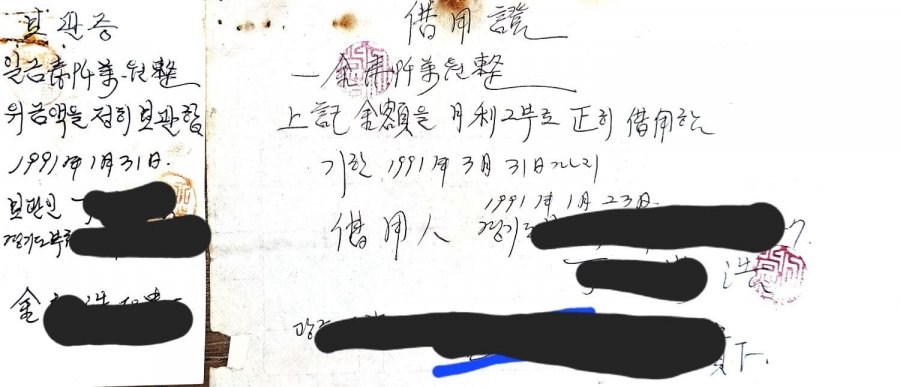 보관증
일금 阡萬 원整
위 금액을 정히 보관함
1991年 1月 31日.
보관인
경기도
金
借用證
一金 阡萬 원整
上記 金額을 月利 2부로 正히 借用하
기한 1991年 3月 31日까지
1991年 1月 23日.
借用人 경기도
浩
下.